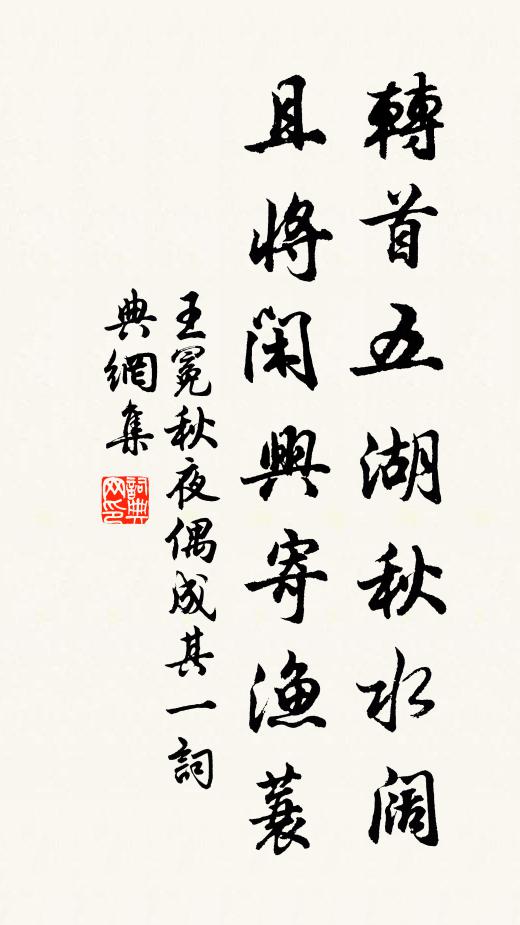 轉首五湖秋水闊
且將閑興寄漁蓑
王冕秋夜偶成其一詞
典網集
詞典网印